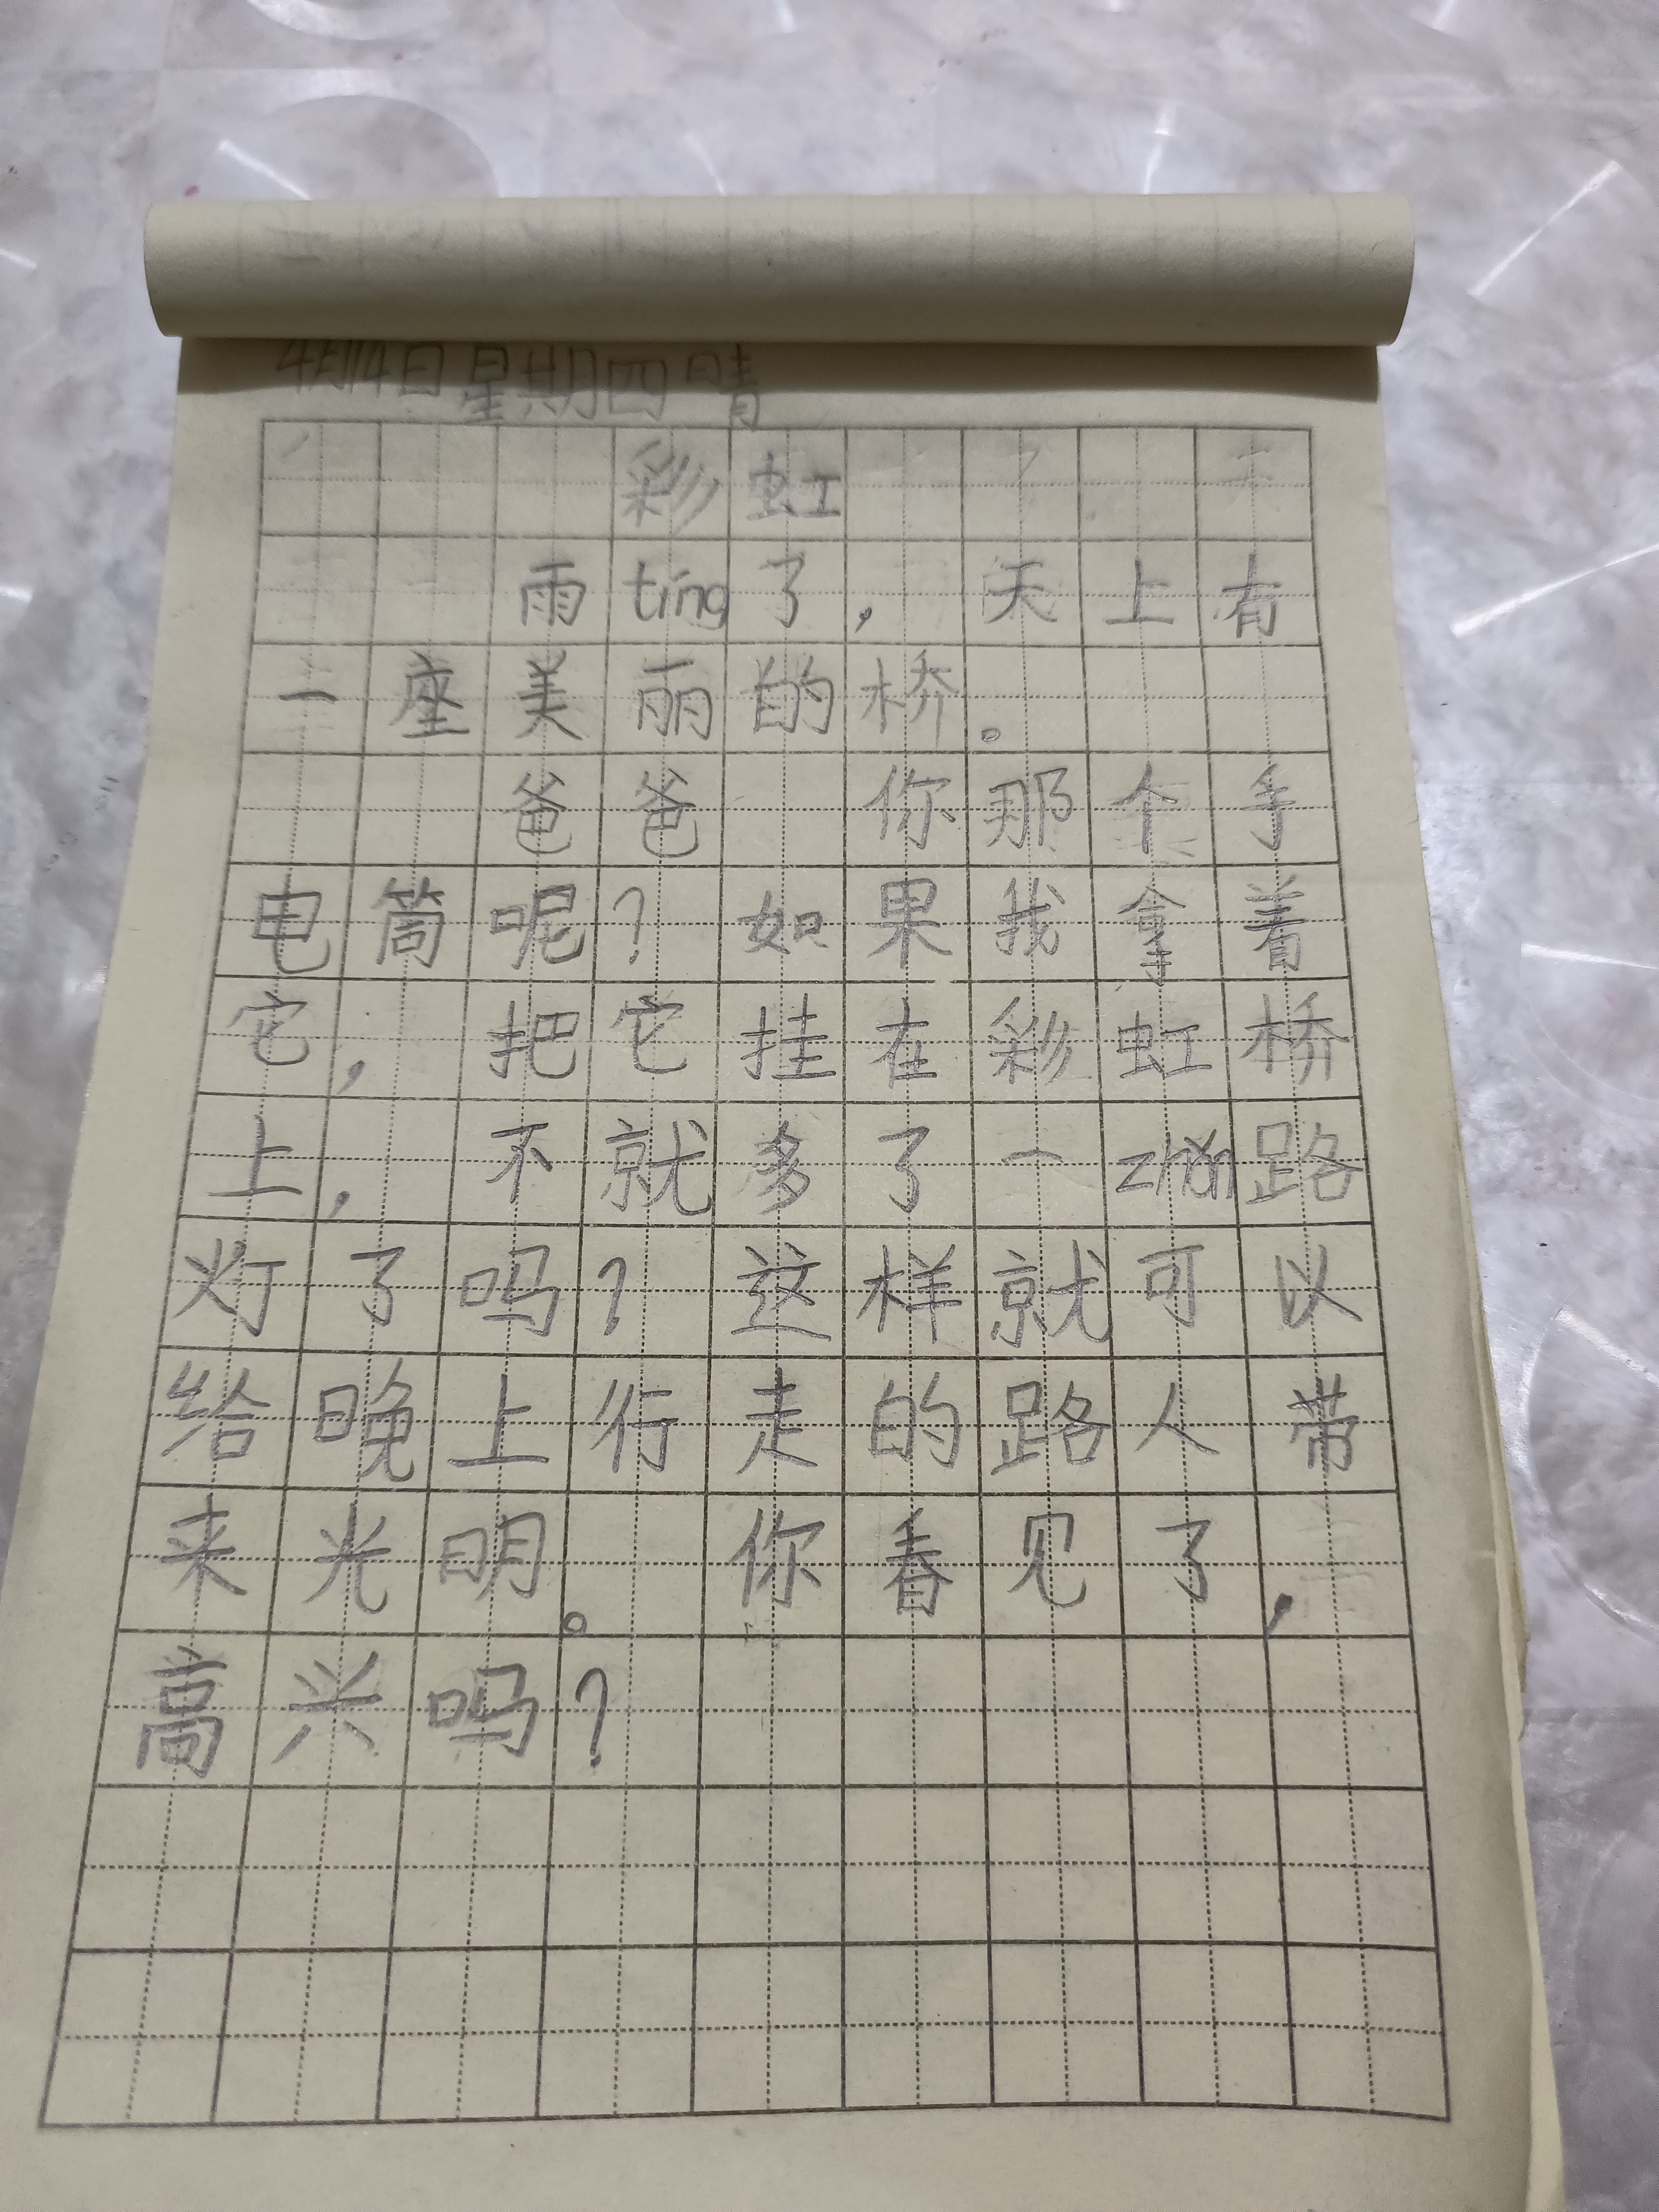 4月14日星期四晴
彩虹
雨tíng了，天上有
一座美丽的桥。
爸爸 你那个手
电筒呢？如果我拿着
它，把它挂在彩虹桥
上，不就多了一zhǎn路
灯了吗？这样就可以
给晚上行走的路人带
来光明。你看见了，
高兴吗？